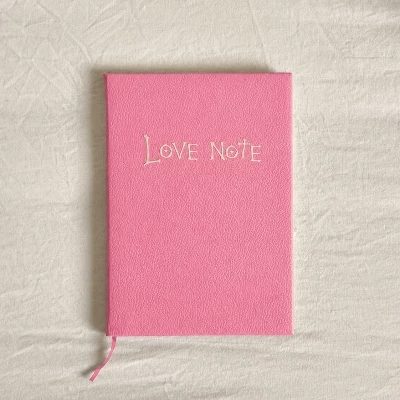 LOVE NOTE